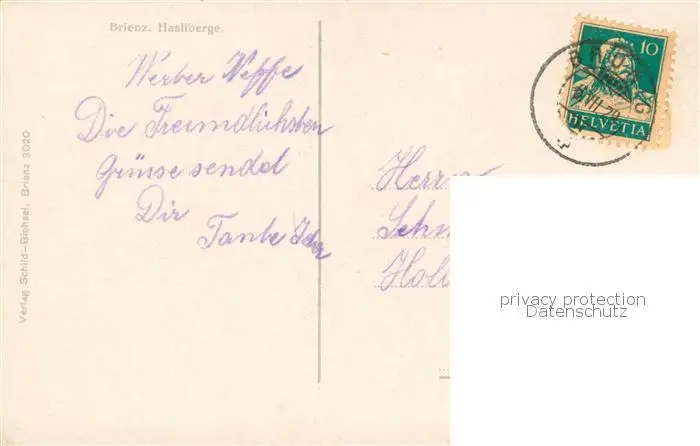 Brienz. Hasliberge.
Werber Neffe
Die Freundlichsten
Grüsse sendet
Dir
Tante
Verlag Schild-Bichsel, Brienz 3020
10
HELVETIA
Herrn
Sch
Hol
privacy protection
Datenschutz